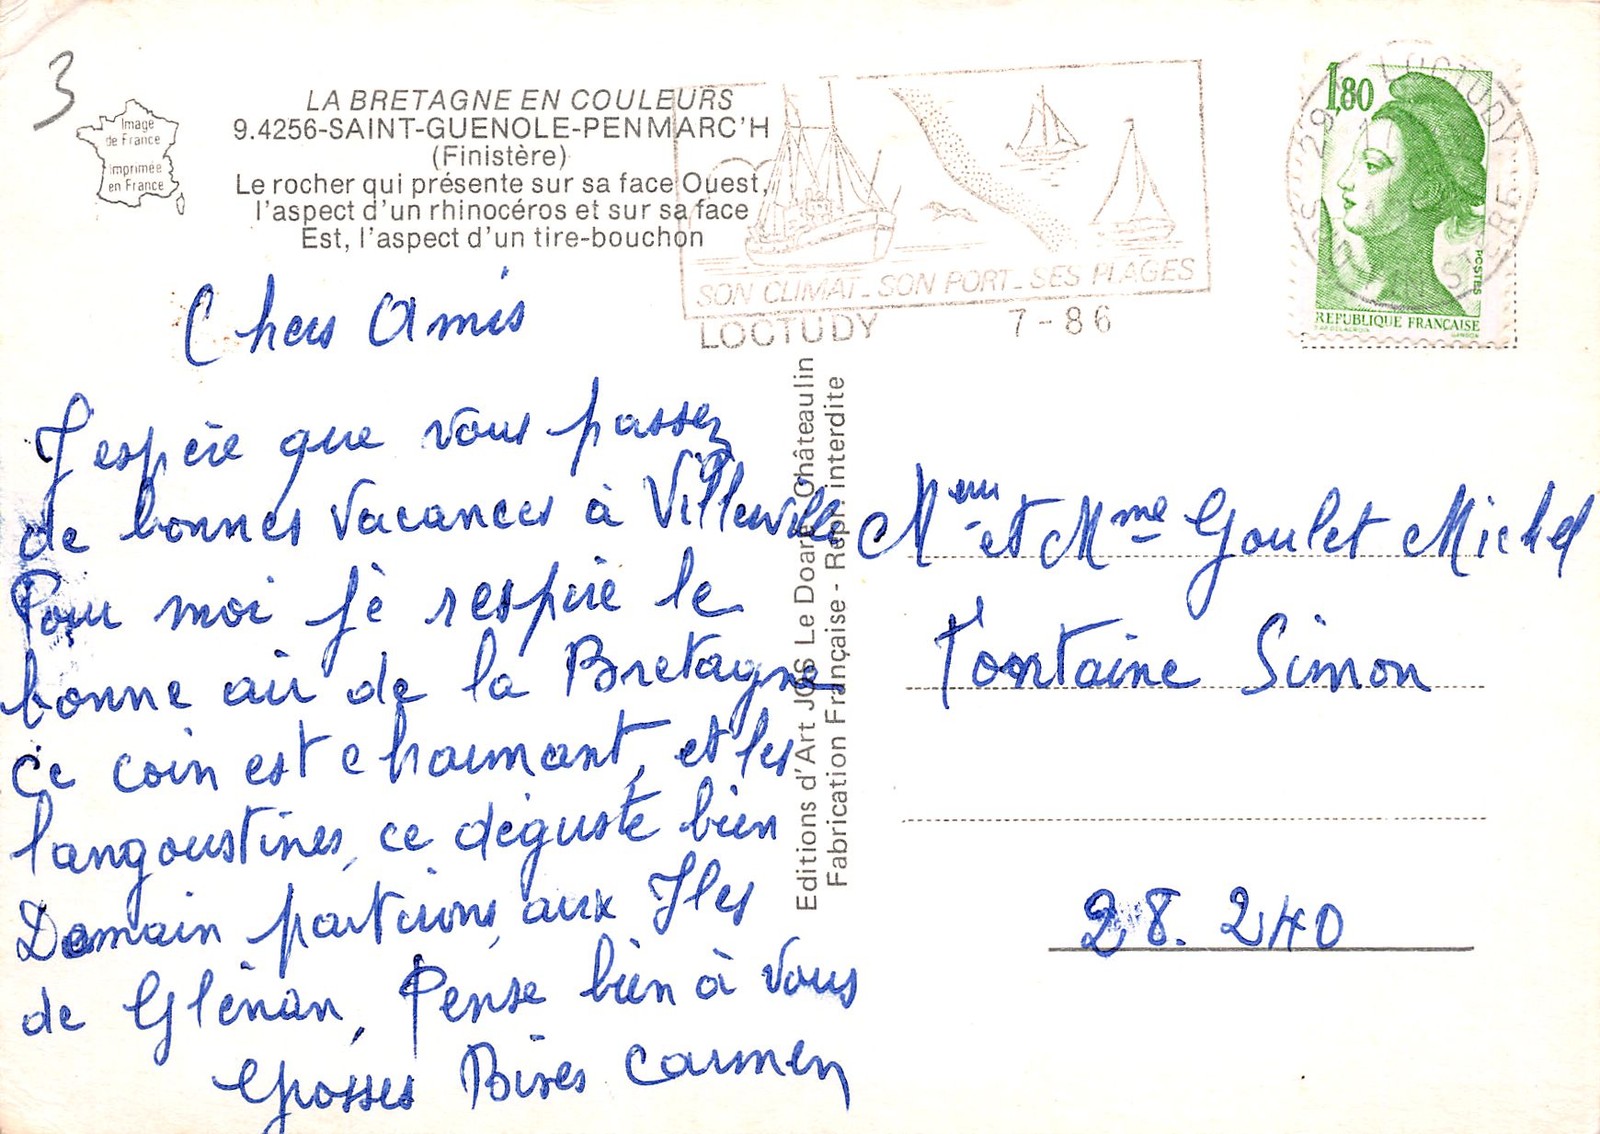 3
Image
de France
imprimée
en France
LA BRETAGNE EN COULEURS
9.4256-SAINT-GUENOLE-PENMARC'H
(Finistère)
Le rocher qui présente sur sa face Ouest,
l'aspect d'un rhinocéros et sur sa face
Est, l'aspect d'un tire-bouchon
SON CLIMAT_SON PORT_SES PLAGES
LOCTUDY 7-86
LOCTUDY
29
1,80
POSTES
REPUBLIQUE FRANÇAISE
Chers Amis
J'espère que vous passez
de bonnes vacances à Villerville
Pour moi je respire le
bonne air de la Bretagne
Ce coin est charmant, et les
langoustines, ce déguste bien
Demain partirons, aux Iles
de Glénan, Pense bien à vous
Grosses Bises Carmen
Editions d'Art JOS Le Doaré Châteaulin
Fabrication Française - Repr. interdite
Meur et Mme Goulet Michel
Fontaine Simon
28.240